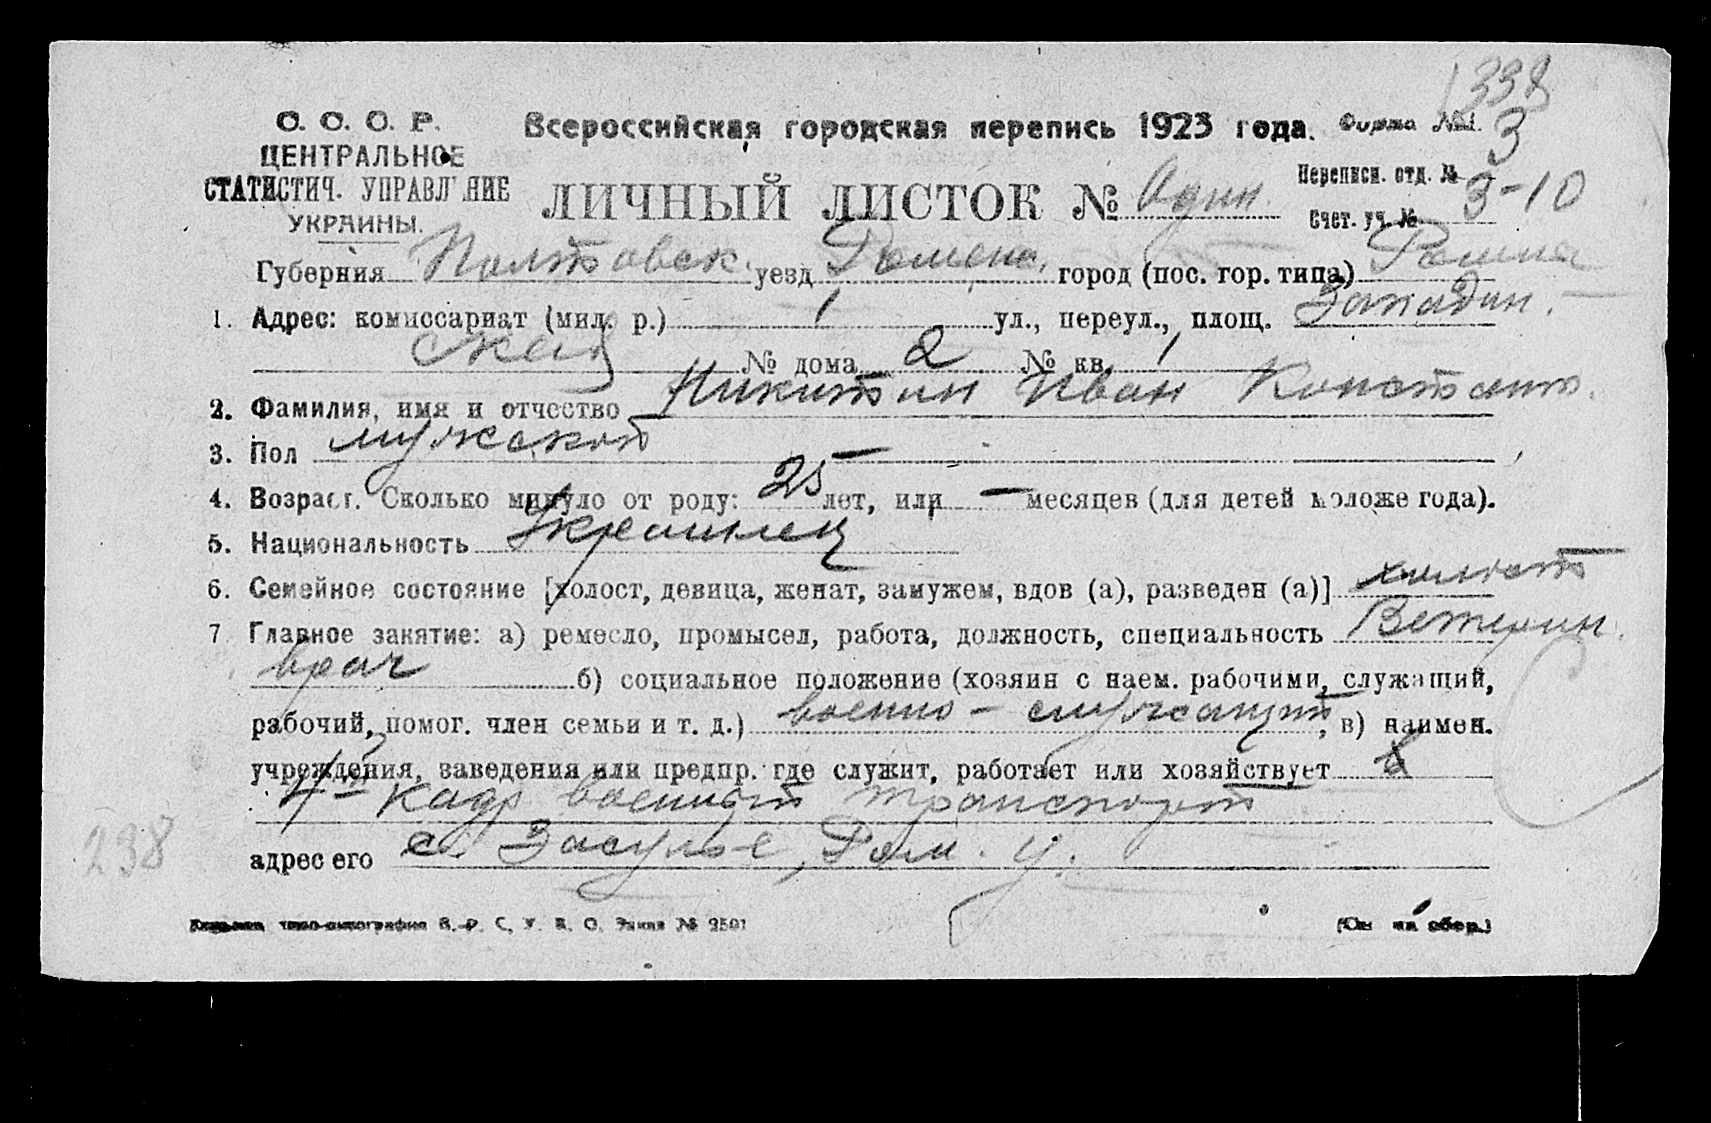 1338
С. С. С. Р.
ЦЕНТРАЛЬНОЕ
СТАТИСТИЧ. УПРАВЛЕНИЕ
УКРАИНЫ.
Всероссийская городская перепись 1923 года. Форма №1.
3
ЛИЧНЫЙ ЛИСТОК № Один.
Переписн. отд. №
Счет. уч. № 3-10
Губерния Полтовск. уезд Роменс. город (пос. гор. типа) Ромна
1. Адрес: комиссариат (мил. р.) 1 ул., переул., площ. Западин.
ская № дома 2 № кв. 1
2. Фамилия, имя и отчество Никитин Иван Констант.
3. Пол мужской —
4. Возраст. Сколько минуло от роду: 25 лет, или — месяцев (для детей моложе года).
5. Национальность Украинец
6. Семейное состояние [холост, девица, женат, замужем, вдов (а), разведен (а)] холост
7. Главное занятие: а) ремесло, промысел, работа, должность, специальность Ветерин.
врач б) социальное положение (хозяин с наем. рабочими, служащий,
рабочий, помог. член семьи и т. д.) военно - служащий, в) наимен.
учреждения, заведения или предпр. где служит, работает или хозяйствует в
4й кадр военный транспорт
адрес его с. Засулье, Ром. у.
238
С. У. В. О. Заказ № 2591
(См. на обор.)